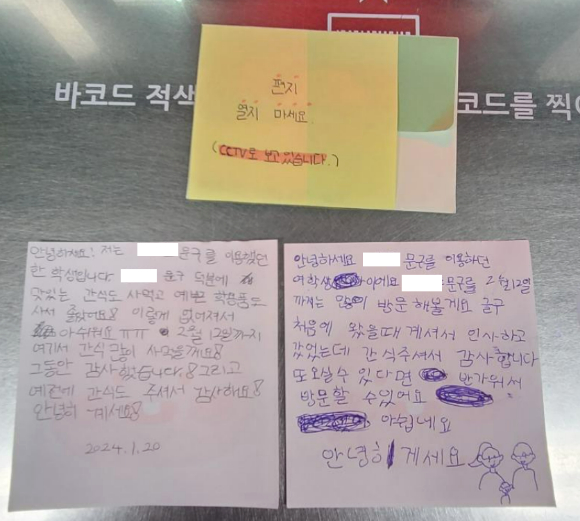 바코드 적색
코드를 찍어
편지
열지 마세요.
(CCTV로 보고 있습니다.)
안녕하세요! 저는 문구를 이용했던
한 학생입니다. 문구 덕분에
맛있는 간식도 사먹고 예쁜 학용품도
사서 좋았어요! 이렇게 없어져서
아쉬워요 ㅠㅠ 2월 12일까지
여기서 간식 많이 사먹을께요!
그동안 감사했습니다! 그리고
예전에 간식도 주셔서 감사해요!
안녕히 계세요!
2024.1.20
안녕하세요 문구를 이용하던
여학생 이에요 문구를 2월12일
까지는 많이 방문 해볼게요 글구
처음에 왔을때 계셔서 인사하고
갔었는데 간식주셔서 감사합니다
또오실수 있다면 반가워서
방문할 수있어요
아쉽네요
안녕히 게세요